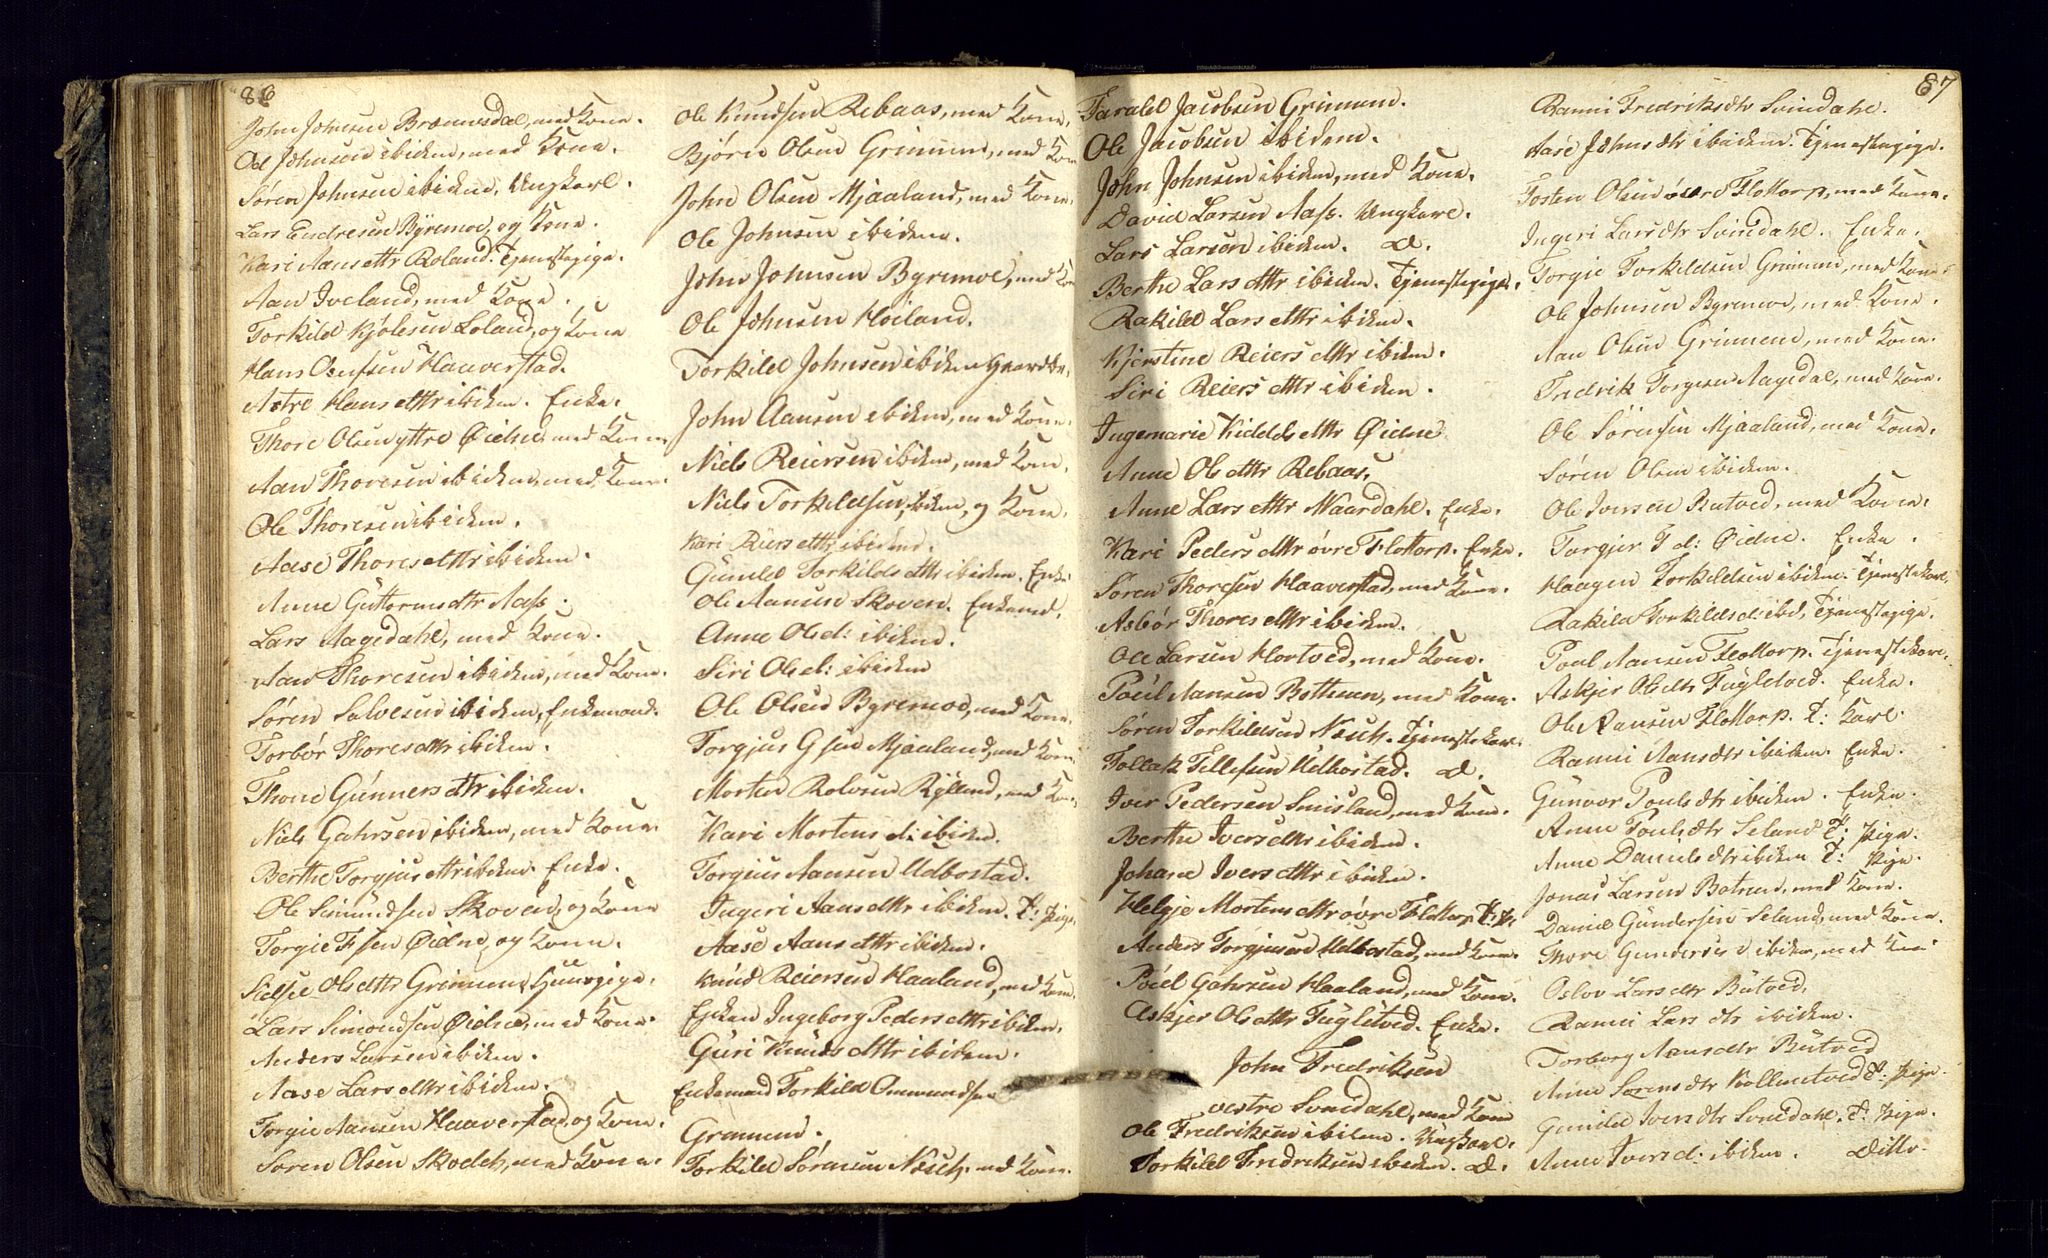 86
John Johnsen Brannesdal, med Kone.
Ol Johnsen ibidem, med Kone.
Søren Johnsen ibidem, Ungkarl.
Lars Endresen Byremoe, og Kone.
Kari Aansdttr Roland. Tjenstepige.
Aan Iveland, med Kone.
Torkild Kjølesen Loland, og Kone
Hans Olufsen Haaverstad.
Astre Hansdttr ibidem. Enke.
Thore Olsen yttre Øidne, med Kone
Aan Thoresen ibidem, med Kone.
Ole Thoresen ibidem.
Aase Thoresdttr ibidem.
Anne Guttormsdtr Aass.
Lars Aagedahl, med Kone.
Aan Thoresen ibidem, med Kone.
Søren Salvesen ibidem, Enkemand.
Torbør Thoresdttr ibidem.
Thone Gunnersdttr ibidem.
Niels Gahrsen ibidem, med Kone.
Berthe Torgjusdttr ibidem. Enke.
Ole Simundsen Skoven, og Kone
Torgie Øidne, og Kone.
Olsdttr Grimmen, Huuspige.
Lars Simondsen Øidne, med Kone.
Anders Larsen ibidem.
Aase Larsdttr ibidem.
Torgie Aansen Haaverstad, og Kone.
Søren Olsen Skodelt, med Kone.
Ole Knudsen Rebaas, med Kone,
Bjørn Olsen Grimmen, med Kone
John Olsen Mjaaland, med Kone,
Ole Johnsen ibidem.
John Johnsen Byremoe, med Kone
Ole Johnsen Høiland.
Torkild Johnsen ibidem
John Aansen ibidem, med Kone.
Niels Reiersen ibidem, med Kone.
Niels Torkildsen, ibidem, og Kone.
Kari Reiersdttr ibidem.
Gunild Torkildsdttr ibidem. Enke
Ole Aansen Skoven. Enkemd.
Anne Olsd: ibidem.
Siri Olsd: ibidem
Ole Olsen Byremoe, med Kone.
Torgjus Mjaaland, med Kone.
Morten Rolvsen Rylland, med Kone,
Kari Mortensd: ibidem.
Torgius Aansen Udbostad.
Ingeri Aansdttr ibidem. T: Pige.
Aase Aansdttr ibidem.
Knud Reiersen Haaland, med Kone.
Enken Ingeborg Pedersdttr ibidem.
Guri Knudsdttr ibidem.
Enkemand Torkild Ommundsen
Grimmen.
Torkild Sørensen Næset, med Kone.
87
Tarald Jacobsen Grimmen.
Ole Jacobsen ibidem.
John Johnsen ibidem, med Kone.
David Larsen Aass. Ungkarl.
Lars Larsen ibidem. D.
Berthe Larsdttr ibidem. Tjenestepige.
Rakild Larsdttr ibidem.
Kjerstine Reiersdttr ibidem.
Siri Reiersdttr ibidem.
Ingemarie Kieldsdttr Øidne
Anne Olsdttr Rebaas,
Anne Larsdttr Waardahl. Enke.
Kari Pedersdttr øvre Flottorp. Enke.
Søren Thoresen Haaverstad, med Kone.
Asbør Thoresdttr ibidem.
Ole Larsen Hortved, med Kone.
Poul Aansen Bothnen, med Kone.
Søren Torkildsen Næset. Tjenestekarl.
Follak Tellefsen Udbostad. D.
Iver Pedersen Smisland, med Kone.
Berthe Iversdttr ibidem.
Johane Iversdttr ibidem.
Helgje Mortensdttr øvre Flottorp. T: P.
Anders Torgjusen Udbostad, med Kone.
Poul Gahrsen Haaland, med Kone.
Askjer Olsdttr Fugletved. Enke.
John Fredriksen
vestre Svindahl, med Kone
Ole Fredriksen ibidem. Ungkarl.
Torkild Fredriksen ibidem. D.
Ranni Fredriksdtr Svindahl.
Aase Johnsdtr ibidem. Tjenestepige.
Tosten Olsen øvre Flottorp, med Kone.
Ingeri Larsdtr Svindahl. Enke.
Torgie Torkildsen Grimmen, med Kone.
Ole Johnsen Byremoe, med Kone.
Aan Olsen Grimmen, med Kone.
Fredrik Torgiesen Aagedal, med Kone.
Ole Sørensen Mjaaland, med Kone.
Søren Olsen ibidem.
Ole Iversen Butved, med Kone.
Torgjer T d: Øidne. Enke.
Haagen Torkildsen ibidem. Tjenestekarl.
Rakild Torkildsd: ibid. Tjenestepige.
Poul Aansen Flottorp. Tjenestekarl.
Askjer Olsdtr Fugletved. Enke.
Ole Aansen Flottorp. T: Karl.
Ranni Aansdtr ibidem. Enke.
Gunvor Poulsdtr ibidem. Enke.
Anne Poulsdtr Seland T: Pige.
Anne Danielsdtr ibidem T: Pige.
Jonas Larsen Botnen, med Kone.
Daniel Gundersen Seland, med Kone.
Thore Gundersen ibidem, med Kone.
Oslov Larsdtr Butved.
Ranni Larsdtr ibidem.
Torborg Aansdtr Butved
Anne Sørensdtr T: Pige.
Gunild Iversdtr Svindahl. T: Pige.
Anne Iversd: ibidem. Ditto.